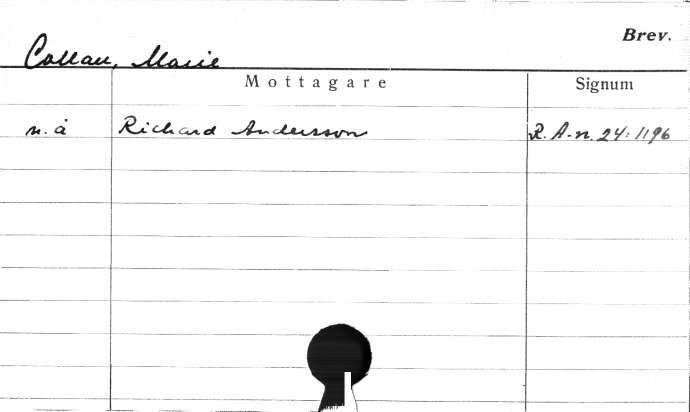 Brev.
Collau, Marie
Mottagare Signum
n. å Richard Andersson R. A. n. 24: 1196